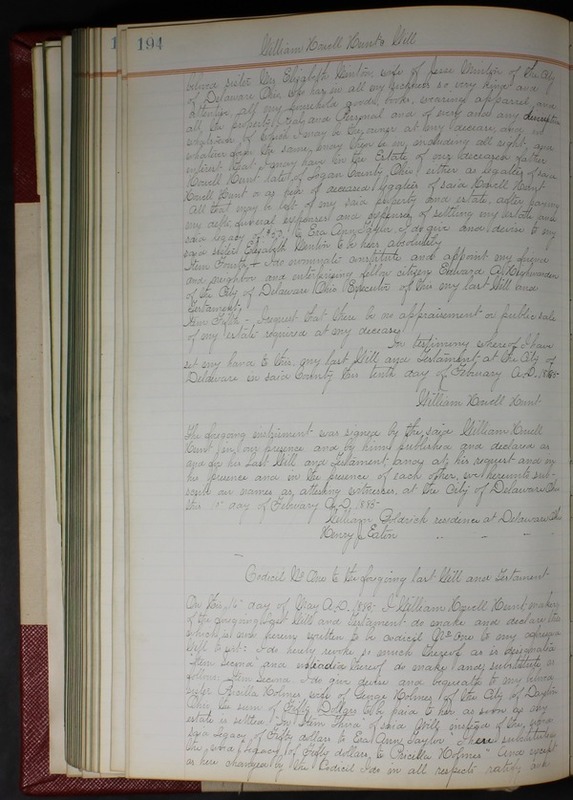 194
William Howell Hunt's Will
beloved sister My Elizabeth Newton, wife of Jesse Newton of the City
of Delaware Ohio, who has in all my sickness so very kind and
attentive, all my household goods, books, wearing apparel, and
all the property, Real and Personal and of every and any description
whatsoever of which I may be the owner at my decease, and in
whatever form the same may then be in, including all right, and
interest that I may have in the Estate of my deceased father
Howell Hunt late of Logan County, Ohio either as legatee of said
Howell Hunt or as heir of deceased legatees of said Howell Hunt
All that may be left of my said property and estate, after paying
my debts, funeral expenses and expenses of settling my estate and
said legacy of to Eva Ann Taylor I do give and devise to my
said sister Elizabeth Newton to be hers absolutely
Item Fourth - I do nominate constitute and appoint my friend
and neighbor and enterprising fellow citizen Edward
of the City of Delaware Ohio Executor of this my last Will and
Testament;
Item Fifth - I request that there be no appraisement or public sale
of my estate required at my decease.
In testimony whereof I have
set my hand to this, my last Will and Testament, at the City of
Delaware in said County this tenth day of February A.D. 1885-
William Howell Hunt
The foregoing instrument was signed by the said William Howell
Hunt in our presence and by him published and declared as
and for his Last Will and Testament, and at his request and in
his presence and in the presence of each other, we hereunto sub-
scribe our names as attesting witnesses, at the City of Delaware Ohio
this 10" day of February A.D. 1885-
William Goldrick residence at Delaware Ohio
Henry J. Eaton " " " "
Codicil No One to the foregoing last Will and Testament
On this day of May A.D. 1885- I William Howell Hunt maker
of the foregoing last Will and Testament do make and declare this
which is herein written to be codicil No One to my aforesaid
Will to wit: I do hereby revoke so much thereof as is designated
"Item Second" and instead thereof do make and substitute as
follows: Item Second. I do give devise and bequeath to my beloved
sister Priscilla Holmes wife of George Holmes of the City of Dayton
Ohio the sum of Fifty Dollars to be paid to her as soon as my
estate is settled. In Item Third of said Will, instead of the words
legacy of Fifty dollars to Eva Ann Taylor I here substitute
the words legacy of Fifty dollars to Priscilla Holmes" - And except
as here changed by this Codicil I do in all respects ratify and